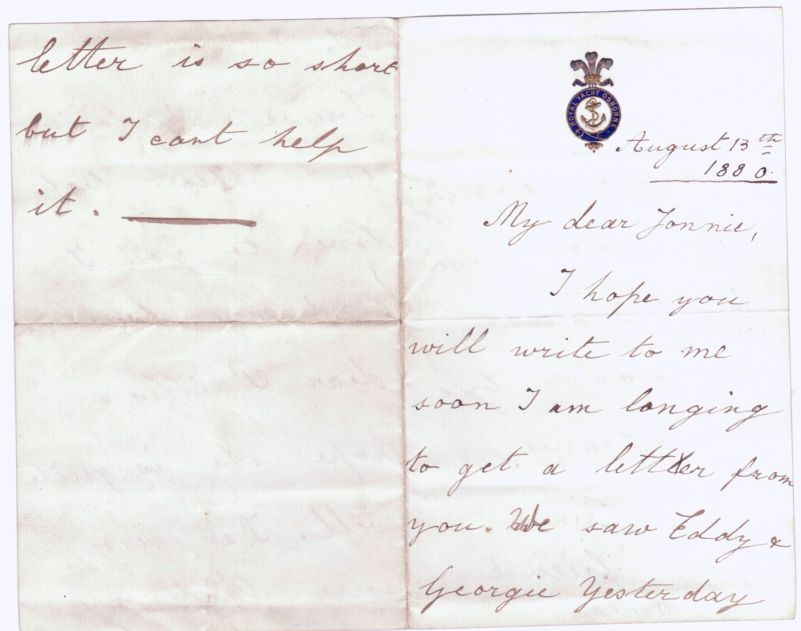 ROYAL YACHT OSBORNE
August 13th
1880.
My dear Jonnie,
I hope you
will write to me
soon I am longing
to get a letter from
you. We saw Eddy &
Georgie Yesterday
letter is so short
but I cant help
it.